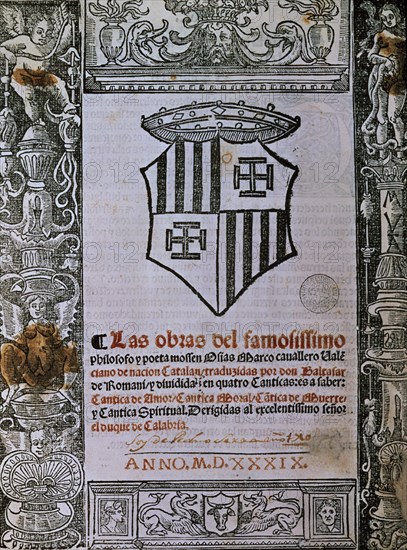 Las obras del famosissimo
philosofo y poeta mossen Osias Marco cauallero Ualē
ciano de nacion Catalan, traduzidas por don Baltasar
de Romani, y diuididas en quatro Canticas: es a saber:
Cantica de Amor, Cantica Moral, Cātica de Muerte,
y Cantica Spiritual. Derigidas al excelentissimo señor
el duque de Calabria.
ANNO. M. D. XXXIX.